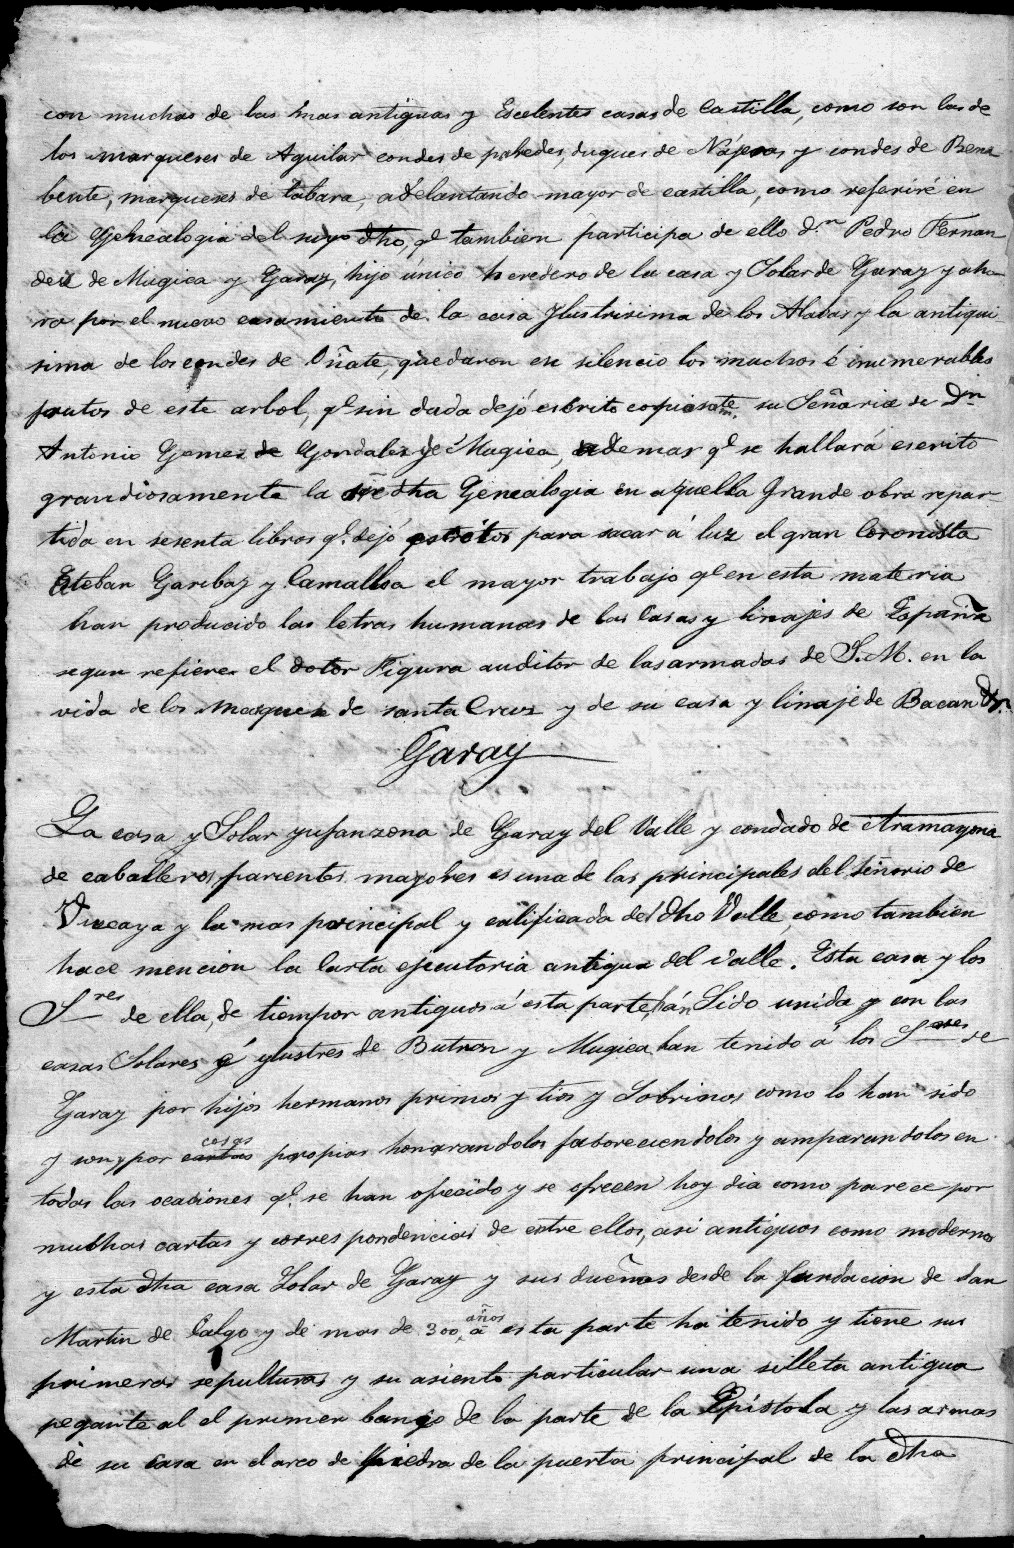 con muchas de las mas antiguas y Escelentes casas de Castilla, como son las de
los marqueses de Aguilar condes de paredes, duques de Nájeras y condes de Bena
bente, marqueses de tabara, adelantando mayor de castilla, como referiré en
la Genealogia del suyo dho, q.e tambien participa de ello d.n Pedro Fernan
dez de Mugica y Garay, hijo único heredero de la casa y Solar de Garay y aho
ra por el nuevo casamiento de la casa Ylustrisima de los Alabas y la antiqui
sima de los condes de Oñate, quedaron en silencio los muchos é inumerables
frutos de este arbol, q.e sin duda dejó escrito copiosam.te su Señoria de D.n
Antonio Gomez de Gonzalez de Mugica, ademas q.e se hallará escrito
grandiosamente la dha Genealogia en aquella grande obra repar-
tida en sesenta libros q.e dejó escritos para sacar á luz el gran Coronista
Esteban Garibay y Camalloa el mayor trabajo q.e en esta materia
han producido las letras humanas de las Casas y linajes de España
segun refiere el dotor Figura auditor de las armadas de S. M. en la
vida de los Marques de santa Cruz y de su casa y linaje de Bacan
Garay
La casa y Solar ynfanzona de Garay del Valle y condado de Aramayona
de caballeros parientes mayores es una de las principales del Señorio de
Viscaya y la mas principal y calificada del dho Valle, como tambien
hace mencion la Carta ejecutoria antigua del valle. Esta casa y los
S.res de ella, de tiempos antiguos á esta parte, hán Sido unida y con las
casas Solares é ylustres de Butron y Mugica han tenido á los S.res de
Garay por hijos hermanos primos y tios y Sobrinos como lo han sido
y son y por cosas propias hongrandolos faboreciendolos y amparandolos en
todas las ocaciones q.e se han ofrecido y se ofrecen hoy dia como parece por
muchas cartas y correspondencias de entre ellos, asi antiguos como modernos
y esta dha casa Solar de Garay y sus dueños desde la fundacion de San
Martin de Calgo y de mas de 300, años á esta parte ha tenido y tiene sus
primeras sepulturas y su asiento particular una silleta antigua
pegante al el primer banco de la parte de la Epistola y las armas
de su Casa en el arco de piedra de la puerta principal de la dha